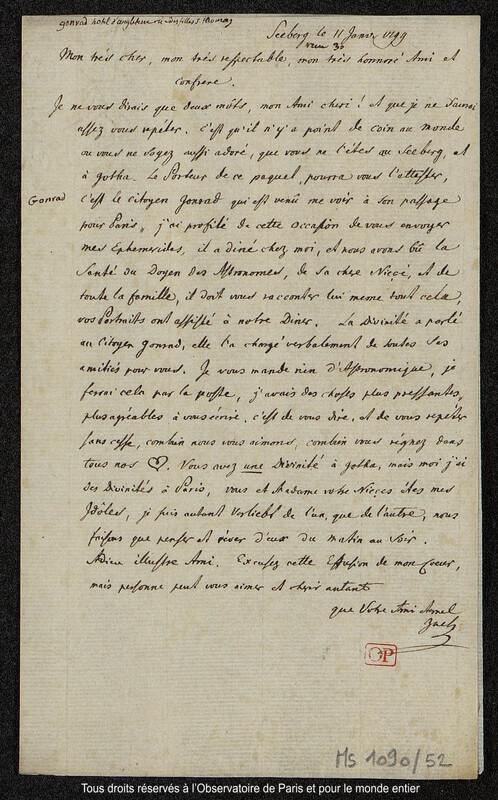 gonrad hotel d'angleterre rue des filles S. thomas
Seeberg le 11 Janv. 1799
reçu 30
Mon très cher, mon très respectable, mon très honoré Ami et
confrere.
Je ne vous dirais que deux môts, mon Ami cheri! et que je ne saurai
assez vous repéter. C'est qu'il n'y a point de coin au monde
ou vous ne soyez aussi adoré, que vous ne l'êtes au Seeberg, et
à gotha. Le Porteur de ce paquet, pourra vous l'attester,
Gonrad
c'est le citoyen Gonrad qui est venû me voir à son passage
pour Paris, j'ai profité de cette occasion de vous envoyer
mes Ephemerides, il a diné chez moi, et nous avons bû la
Santé du Doyen des Astronomes, de sa chere Niéce, et de
toute la famille, il doit vous racconter lui meme tout cela,
vos Portraits ont assisté à notre Diner. La Divinité a parlé
au Citoyen gonrad, elle l'a chargé verbalement de toutes ses
amitiés pour vous. Je vous mande rien d'Astronomique, je
ferrai cela par la poste, j'avais des choses plus pressantes,
plus agréables à vous écrire. c'est de vous dire, et de vous repeter
sans cesse, combien nous vous aimons, combien vous regnez dans
tous nos ♡. Vous avez une Divinité à gotha, mais moi j'ai
des Divinités à Paris, vous et Madame votre Niéces êtes mes
Idôles, je suis autant verliebt de l'un, que de l'autre, nous
faisons que penser et réver d'eux du matin au Soir.
Adieu illustre Ami. Excusez cette Effusion de mon Coeur,
mais personne peut vous aimer et cherir autant
que Votre Ami
Zach
OP
Ms 1090/52
Tous droits réservés à l'Observatoire de Paris et pour le monde entier